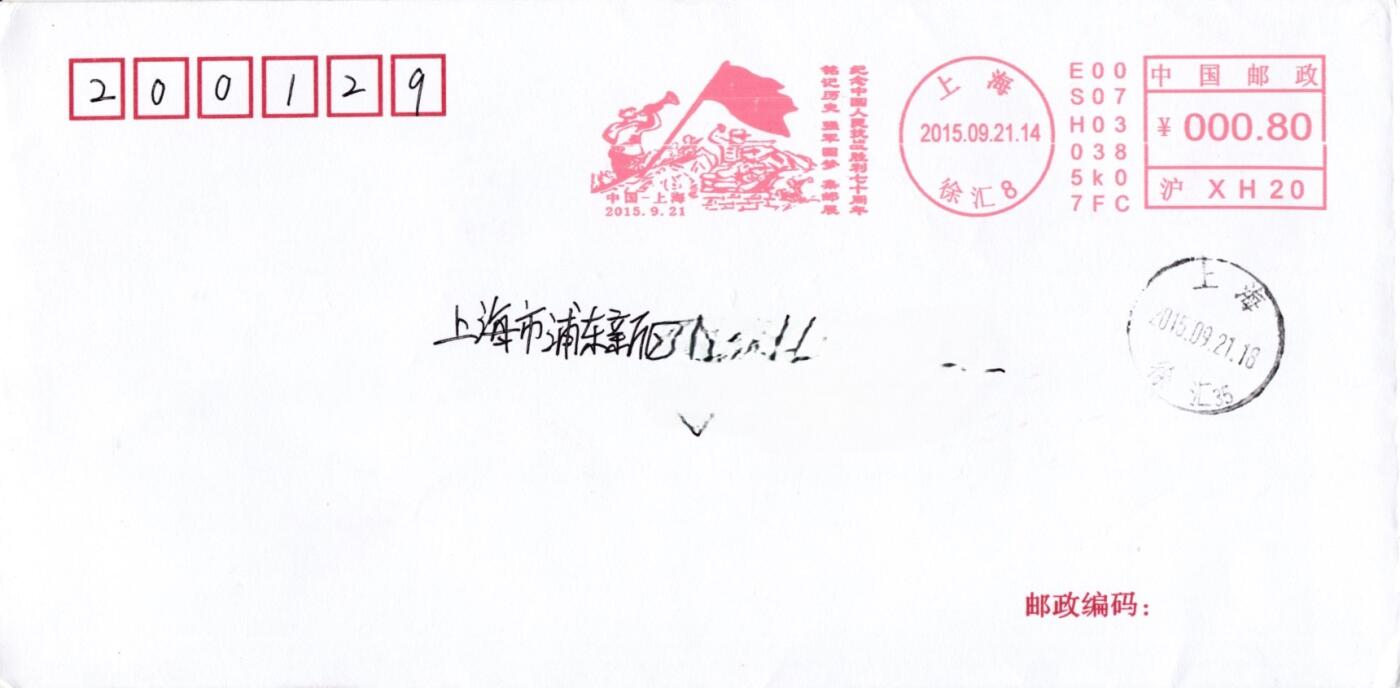 200129
纪念中国人民抗战胜利七十周年
铭记历史 强军圆梦 集邮展
中国-上海
2015.9.21
上海
2015.09.21.14
徐汇8
E00
S07
H03
038
5k0
7FC
中国邮政
¥ 000.80
沪 XH20
上海
2015.09.21.18
徐汇35
上海市浦东新区
邮政编码：